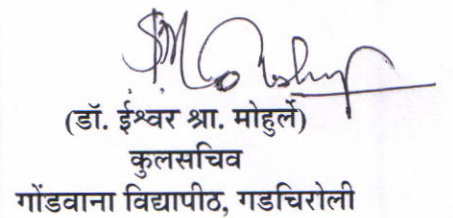 (डॉ. ईश्वर श्रा. मोहुर्ले)
कुलसचिव
गोंडवाना विद्यापीठ, गडचिरोली